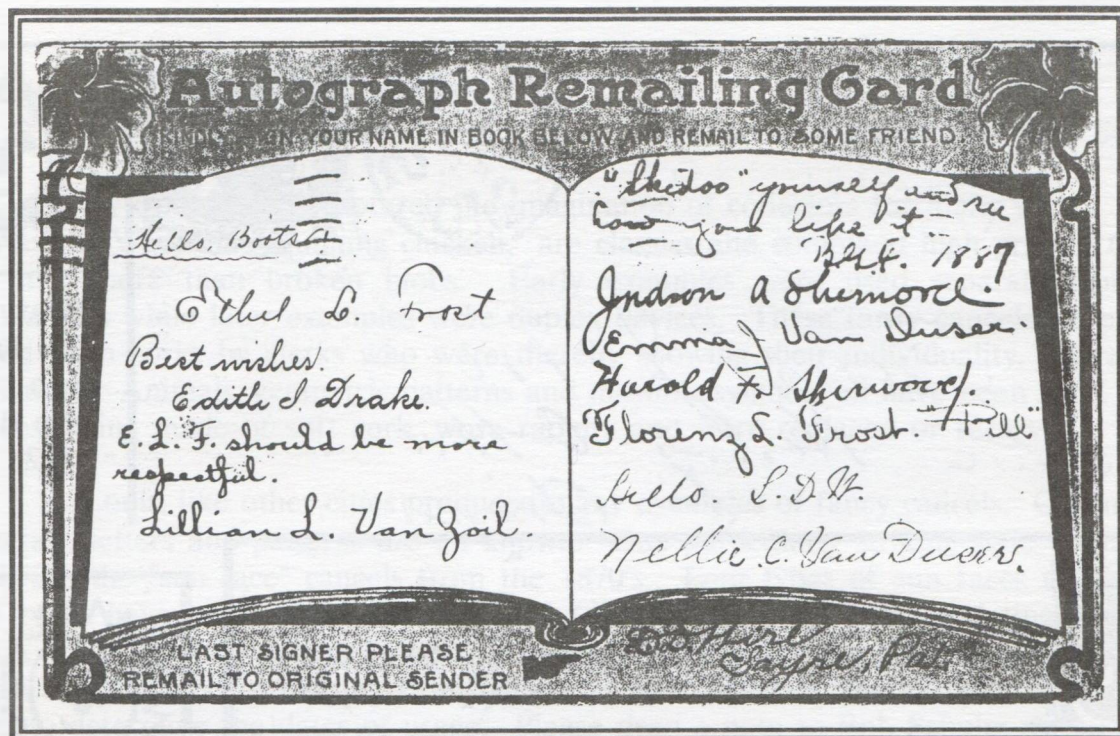 Autograph Remailing Card
KINDLY SIGN YOUR NAME IN BOOK BELOW AND REMAIL TO SOME FRIEND.
Hello, Boots
Ethel L. Frost
Best wishes.
Edith S. Drake.
E. L. F. should be more
respectful.
Lillian L. Van Zoil
"Skidoo" yourself and see
how you like it
1887
Judson A Sherwood.
Emma J Van Duser.
Harold F. Sherwood.
Florenz L. Frost. "Pill"
Hello L.D.W.
Nellie C. Van Duser.
LAST SIGNER PLEASE
REMAIL TO ORIGINAL SENDER
Shire
Sayre, Pa.